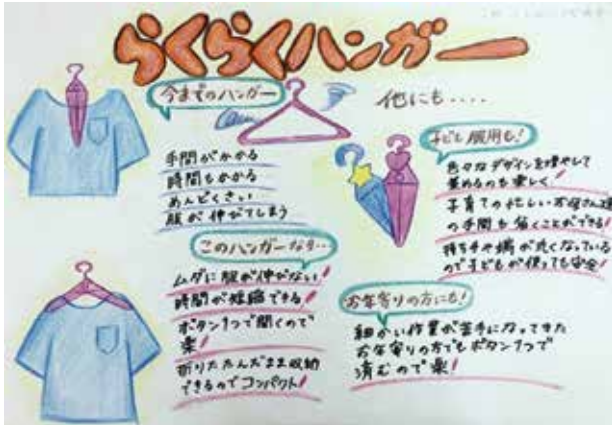 らくらくハンガー
今までのハンガー
手間がかかる
時間もかかる
めんどくさい…
服が伸びてしまう
このハンガーなら…
ムダに服が伸びない!
時間が短縮できる!
ボタン1つで開くので
楽!
折りたたんだまま収納
できるのでコンパクト!
他にも....
子ども服用も!
色々なデザインを増やして
集めるのも楽しく!
子育ての忙しいお母さん達
の手間も省くことができる!
持ち手や端が丸くなっている
ので子どもが使っても安全!
お年寄りの方にも!
細かい作業が苦手になってきた
お年寄りの方でもボタン1つで
済むので楽!